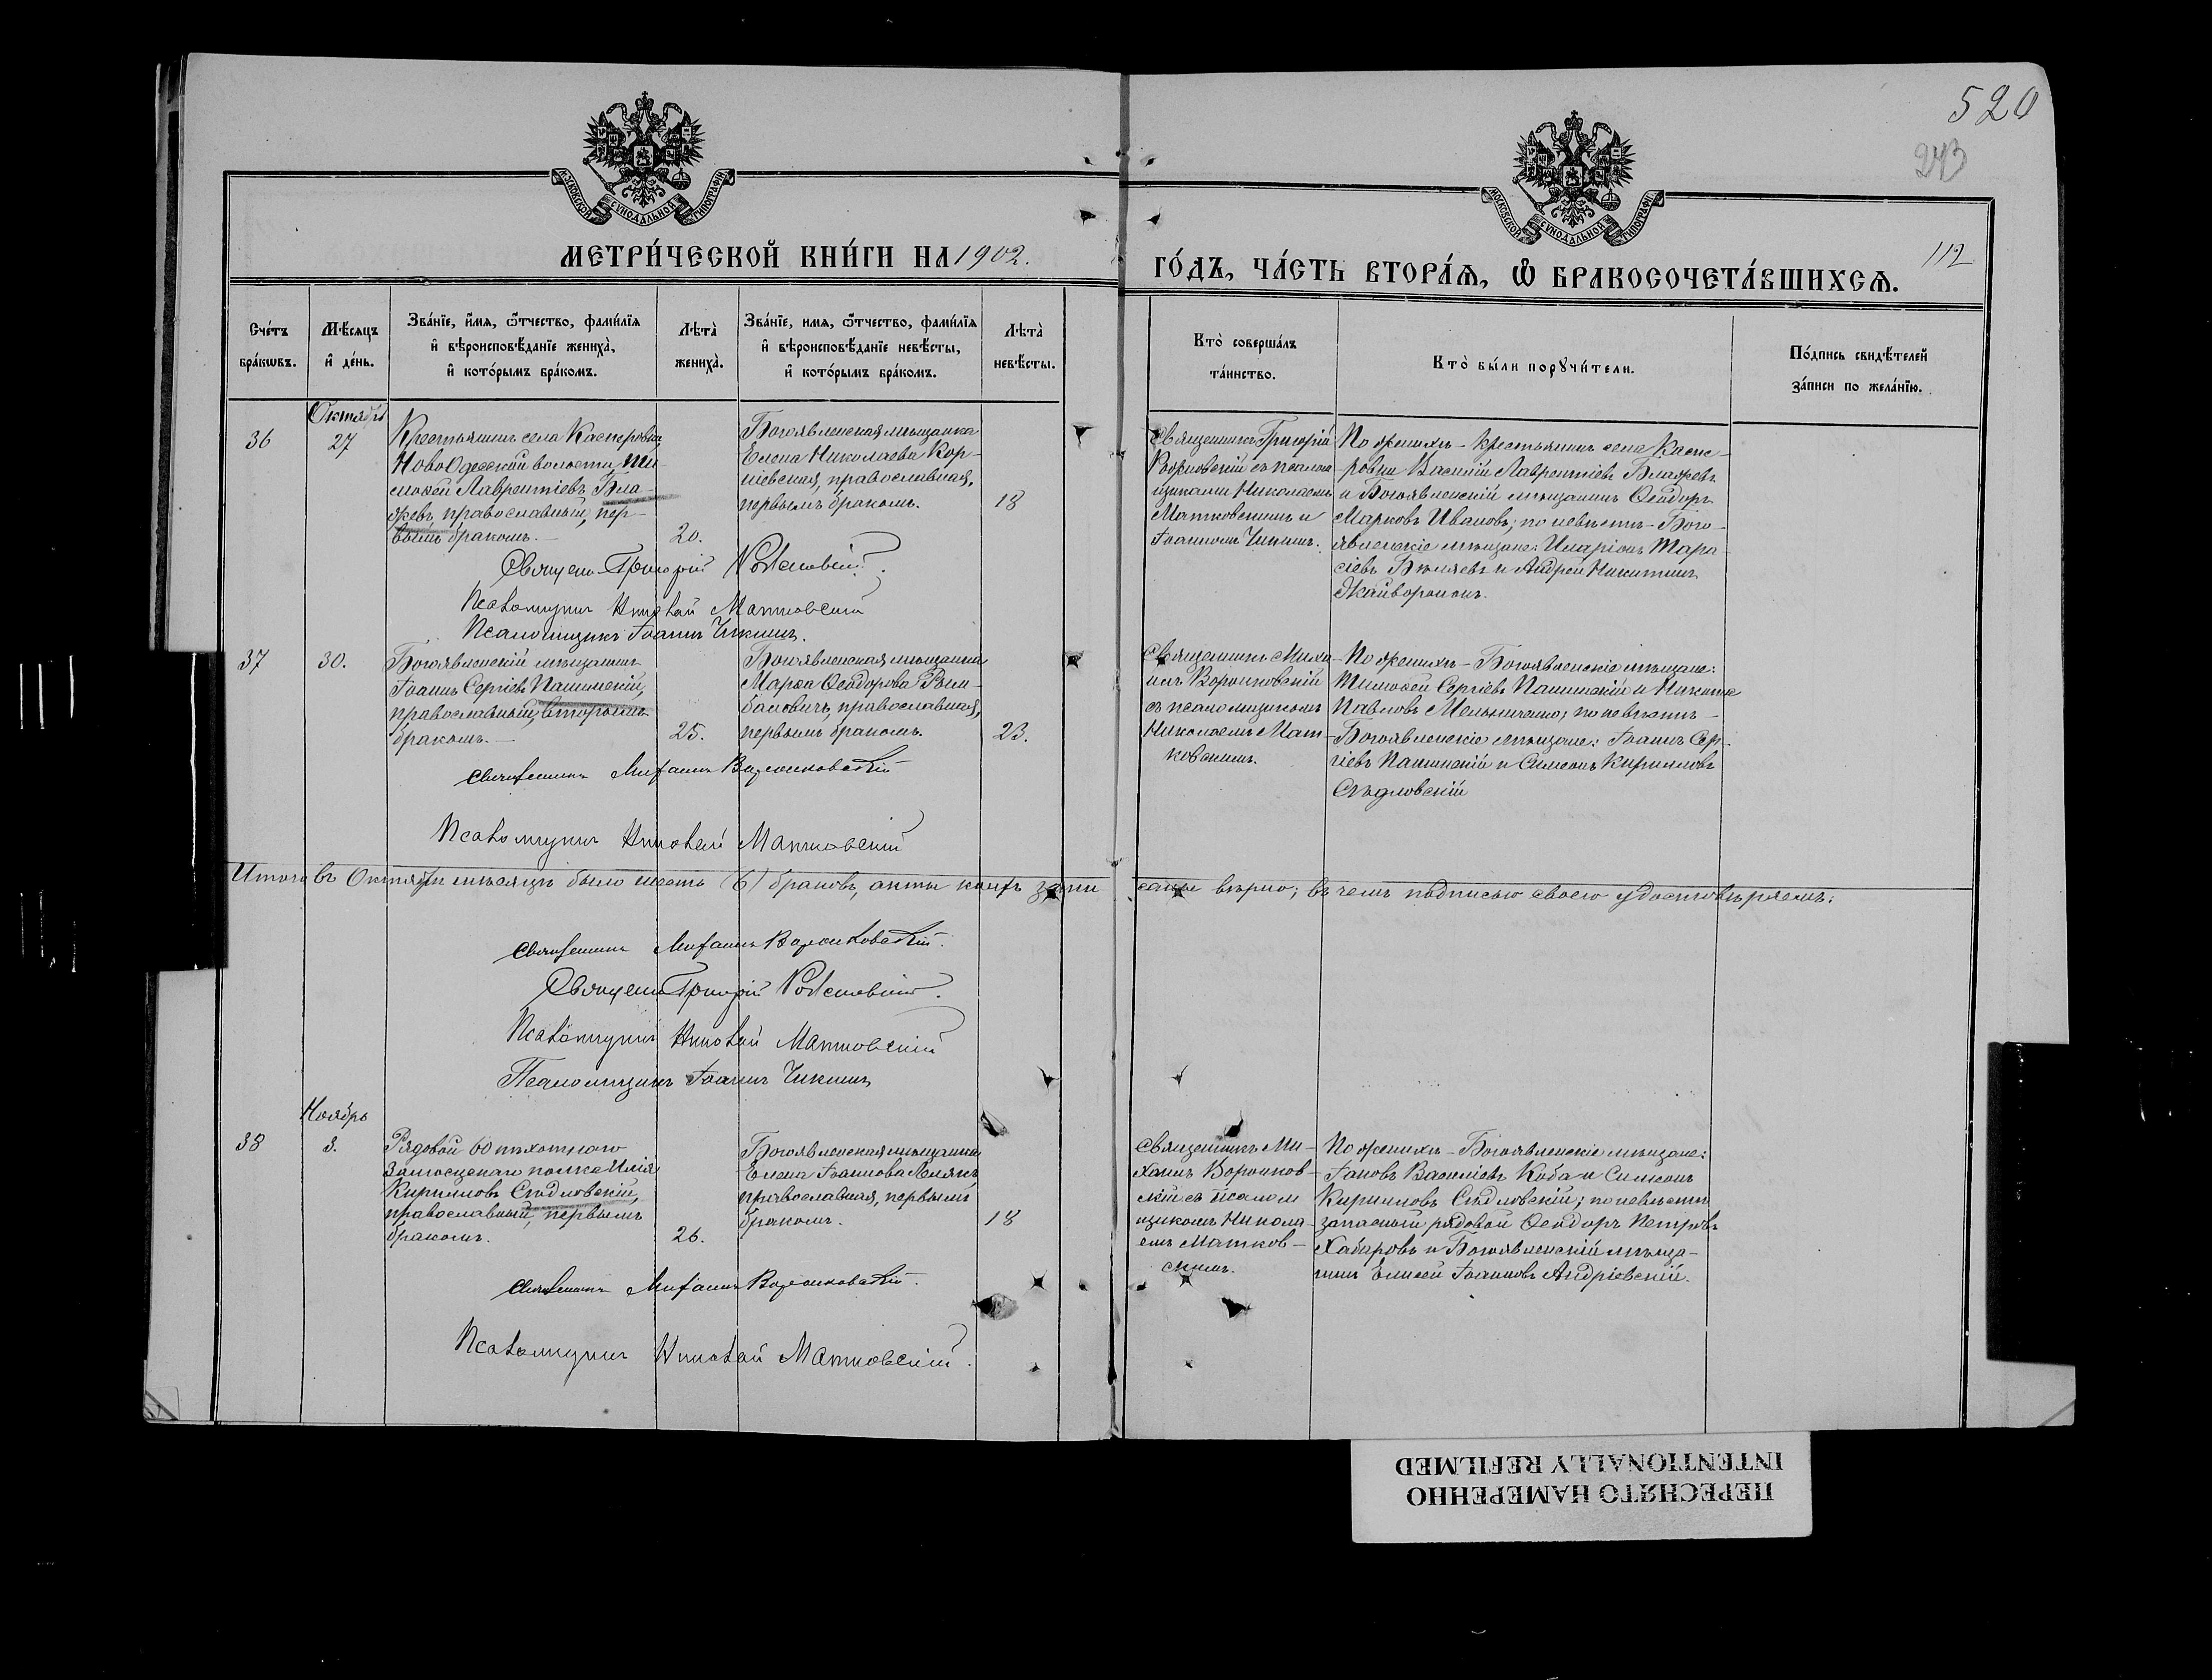 520
243
112
МОСКОВСКОЙ СѴНОДАЛЬНОЙ ТИПОГРАФІИ
МОСКОВСКОЙ СѴНОДАЛЬНОЙ ТИПОГРАФІИ
МЕТРИ́ЧЕСКОЙ КНИ́ГИ НА 1902.
ГО́ДЪ, ЧА́СТЬ ВТОРА́Я, Ѽ БРАКОСОЧЕТА́ВШИХСЯ.
Сче́тъ бра́кѡвъ.
Мѣ́сяцъ и҆ де́нь.
Зва́нїе, и҆́мя, ѻ҆́тчество, фами́лїя
и҆ вѣроисповѣ́данїе жениха̀,
и҆ кото́рымъ бра́комъ.
Лѣта̀ жениха̀.
Зва́нїе, имя, ѻ҆́тчество, фами́лїя
и҆ вѣроисповѣ́данїе невѣ́сты,
и҆ кото́рымъ бра́комъ.
Лѣта̀ невѣ́сты.
Кто̀ соверша́лъ
та́инство.
Кто̀ бы́ли порꙋчи́тели.
По́дпись свидѣ́телей
за́писи по жела́нїю.
Октябрь
36
27
Крестьянинъ села Касперовки
Ново Одесской волости, Ти-
моѳей Лаврентіевъ Бла-
жевъ, православный, пер-
вымъ бракомъ.
20.
Богоявленская мѣщанка
Елена Николаева Кор-
ніевская, православная,
первымъ бракомъ.
18
Священникъ Григорій
съ псалом-
щиками Николаемъ
Матковскимъ и
Іоанномъ Чикинъ.
По женихѣ - крестьянинъ села Каспе-
ровки Василій Лаврентіевъ Блажевъ
и Богоявленскій мѣщанинъ Ѳеодоръ
Марковъ Ивановъ; по невѣстѣ - Бого-
явленскіе мѣщане: Иларіонъ Тара-
сіевъ Бѣляевъ и Андрей Никитинъ
Жайворонокъ.
Священ. Григорій
Псаломщикъ Николай Матковскій
Псаломщикъ Іоаннъ Чикинъ.
37
30.
Богоявленскій мѣщанинъ
Іоаннъ Сергіевъ Пашинскій,
православный, вторымъ
бракомъ.
25.
Богоявленская мѣщанка
Марѳа Ѳеодорова
православная,
первымъ бракомъ.
23.
Священникъ Миха-
илъ Воронковскій
съ псаломщикомъ
Николаемъ Мат-
ковскимъ.
По женихѣ - Богоявленскіе мѣщане:
Тимоѳей Сергіевъ Пашинскій и Никита
Павловъ Мельниченко; по невѣстѣ -
Богоявленскіе мѣщане: Іоаннъ Сер-
гіевъ Пашинскій и Симеонъ Кирилловъ
Слѣдловскій
Священникъ Михаилъ Воронковскій
Псаломщикъ Николай Матковскій
Итого въ Октябрѣ мѣсяцѣ было шесть (6) браковъ, акты коихъ записаны вѣрно; въ чемъ подписью своею удостовѣряемъ:
Священникъ Михаилъ Воронковскій.
Священ. Григорій
Псаломщикъ Николай Матковскій
Псаломщикъ Іоаннъ Чикинъ
Ноябрь
38
3.
Рядовой 60 пѣхотнаго
Замосцскаго полка Илія
Кирилловъ Слѣдловскій,
православный, первымъ
бракомъ.
26.
Богоявленская мѣщанка
Елена Іоаннова
православная, первымъ
бракомъ.
18
Священникъ Ми-
хаилъ Воронков-
скій съ псалом-
щикомъ Никола-
емъ Матков-
скимъ.
По женихѣ - Богоявленскіе мѣщане:
Іаковъ Василіевъ Коба и Симеонъ
Кирилловъ Слѣдловскій; по невѣстѣ
запасный рядовой Ѳеодоръ Петровъ
Хабаровъ и Богоявленскій мѣща-
нинъ Елисей Іоанновъ Андріевскій.
Священникъ Михаилъ Воронковскій.
Псаломщикъ Николай Матковскій.
ПЕРЕСНЯТО НАМЕРЕННО
INTENTIONALLY REFILMED